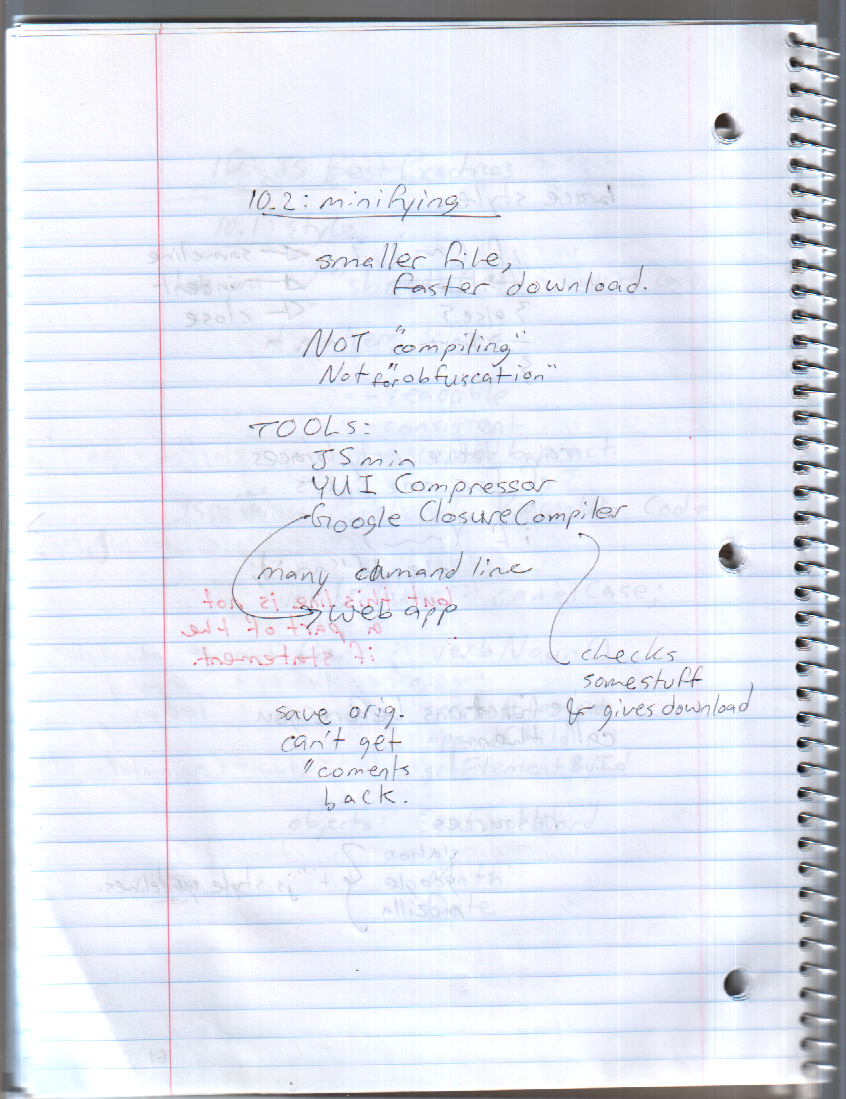 10.2: minifying
smaller file,
faster download.
NOT "compiling"
Not for "obfuscation"
TOOLS:
JSmin
YUI Compressor
Google Closure Compiler
many comand line
web app
but this line is not
a part of the
if statement.
checks
some stuff
& gives download
save orig.
can't get
"coments
back.